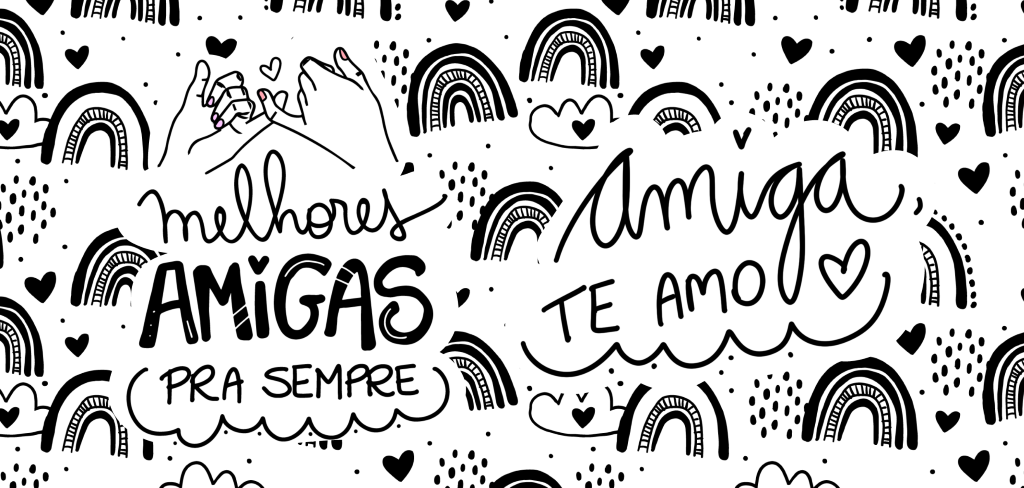 melhores
AMiGAS
PRA SEMPRE
amiga
TE AMO